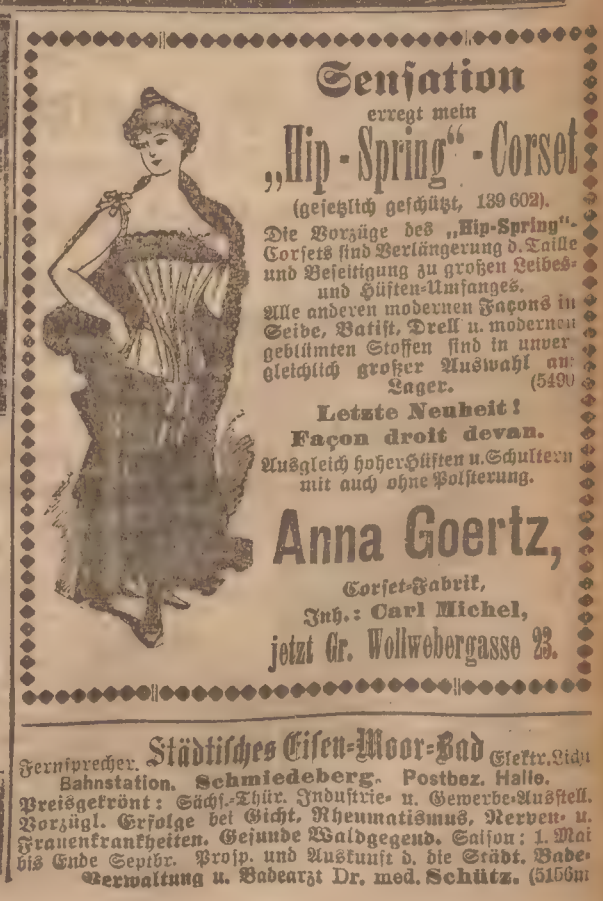 Sensation
erregt mein
„Hip - Spring“ - Corset
(gesetzlich geschützt, 139 602).
Die Vorzüge des „Hip-Spring“-
Corsets sind Verlängerung d. Taille
und Beseitigung zu großen Leibes-
und Hüften-Umfanges.
Alle anderen modernen Façons in
Seide, Batist, Drell u. modernen
geblümten Stoffen sind in unver
gleichlich großer Auswahl am
Lager. (5490
Letzte Neuheit!
Façon droit devan.
Ausgleich hoher Hüften u. Schultern
mit auch ohne Polsterung.
Anna Goertz,
Corset-Fabrik,
Inh.: Carl Michel,
jetzt Gr. Wollwebergasse 23.
Fernsprecher. Städtisches Eisen-Moor-Bad Elektr. Licht
Bahnstation. Schmiedeberg. Postbez. Halle.
Preisgekrönt: Sächs.-Thür. Industrie- u. Gewerbe-Ausstell.
Vorzügl. Erfolge bei Gicht, Rheumatismus, Nerven- u.
Frauenkrankheiten. Gesunde Waldgegend. Saison: 1. Mai
bis Ende Septbr. Prosp. und Auskunft d. die Städt. Bade-
Verwaltung u. Badearzt Dr. med. Schütz. (5156m